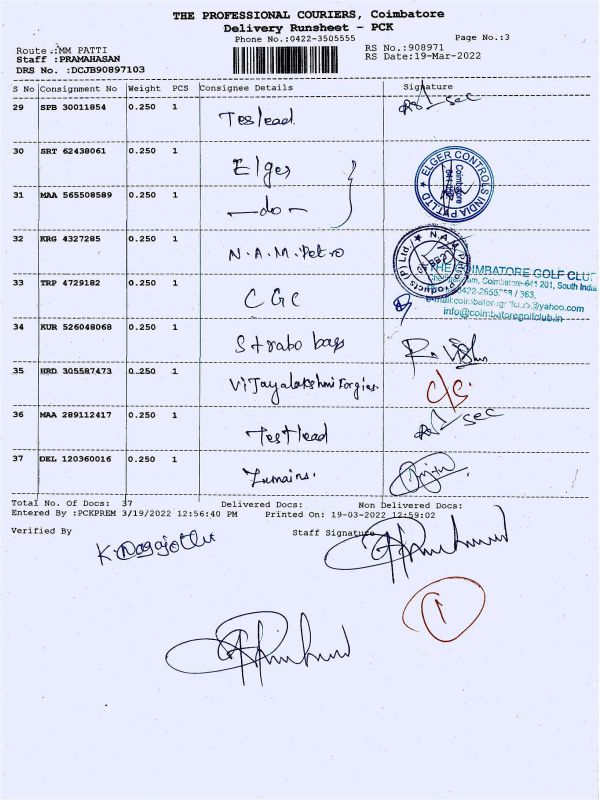 THE PROFESSIONAL COURIERS, Coimbatore
Delivery Runsheet - PCK
Phone No.:0422-3505555
Page No.:3
Route :MM PATTI
RS No.:908971
Staff :PRAMAHASAN
RS Date:19-Mar-2022
DRS No. :DCJB90897103
S No Consignment No Weight PCS Consignee Details Signature
29 SPB 30011854 0.250 1 Teslead sec
30 SRT 62438061 0.250 1 Elger
ELGER CONTROLS INDIA PVT LTD
Coimbatore
31 MAA 565508589 0.250 1 —do—
32 KRG 4327285 0.250 1 N.A.M. Petro
33 TRP 4729182 0.250 1 CGC
THE COIMBATORE GOLF CLUB
Coimbatore-641 201, South India
info@coimbatoregolfclub.in
34 KUR 526048068 0.250 1 Strabo bags
35 HRD 305587473 0.250 1 Vijayalakshmi Forgies. C/S.
36 MAA 289112417 0.250 1 Testlead sec
37 DEL 120360016 0.250 1
Total No. Of Docs: 37 Delivered Docs: Non Delivered Docs:
Entered By :PCKPREM 3/19/2022 12:56:40 PM Printed On: 19-03-2022 12:59:02
Verified By Staff Signature